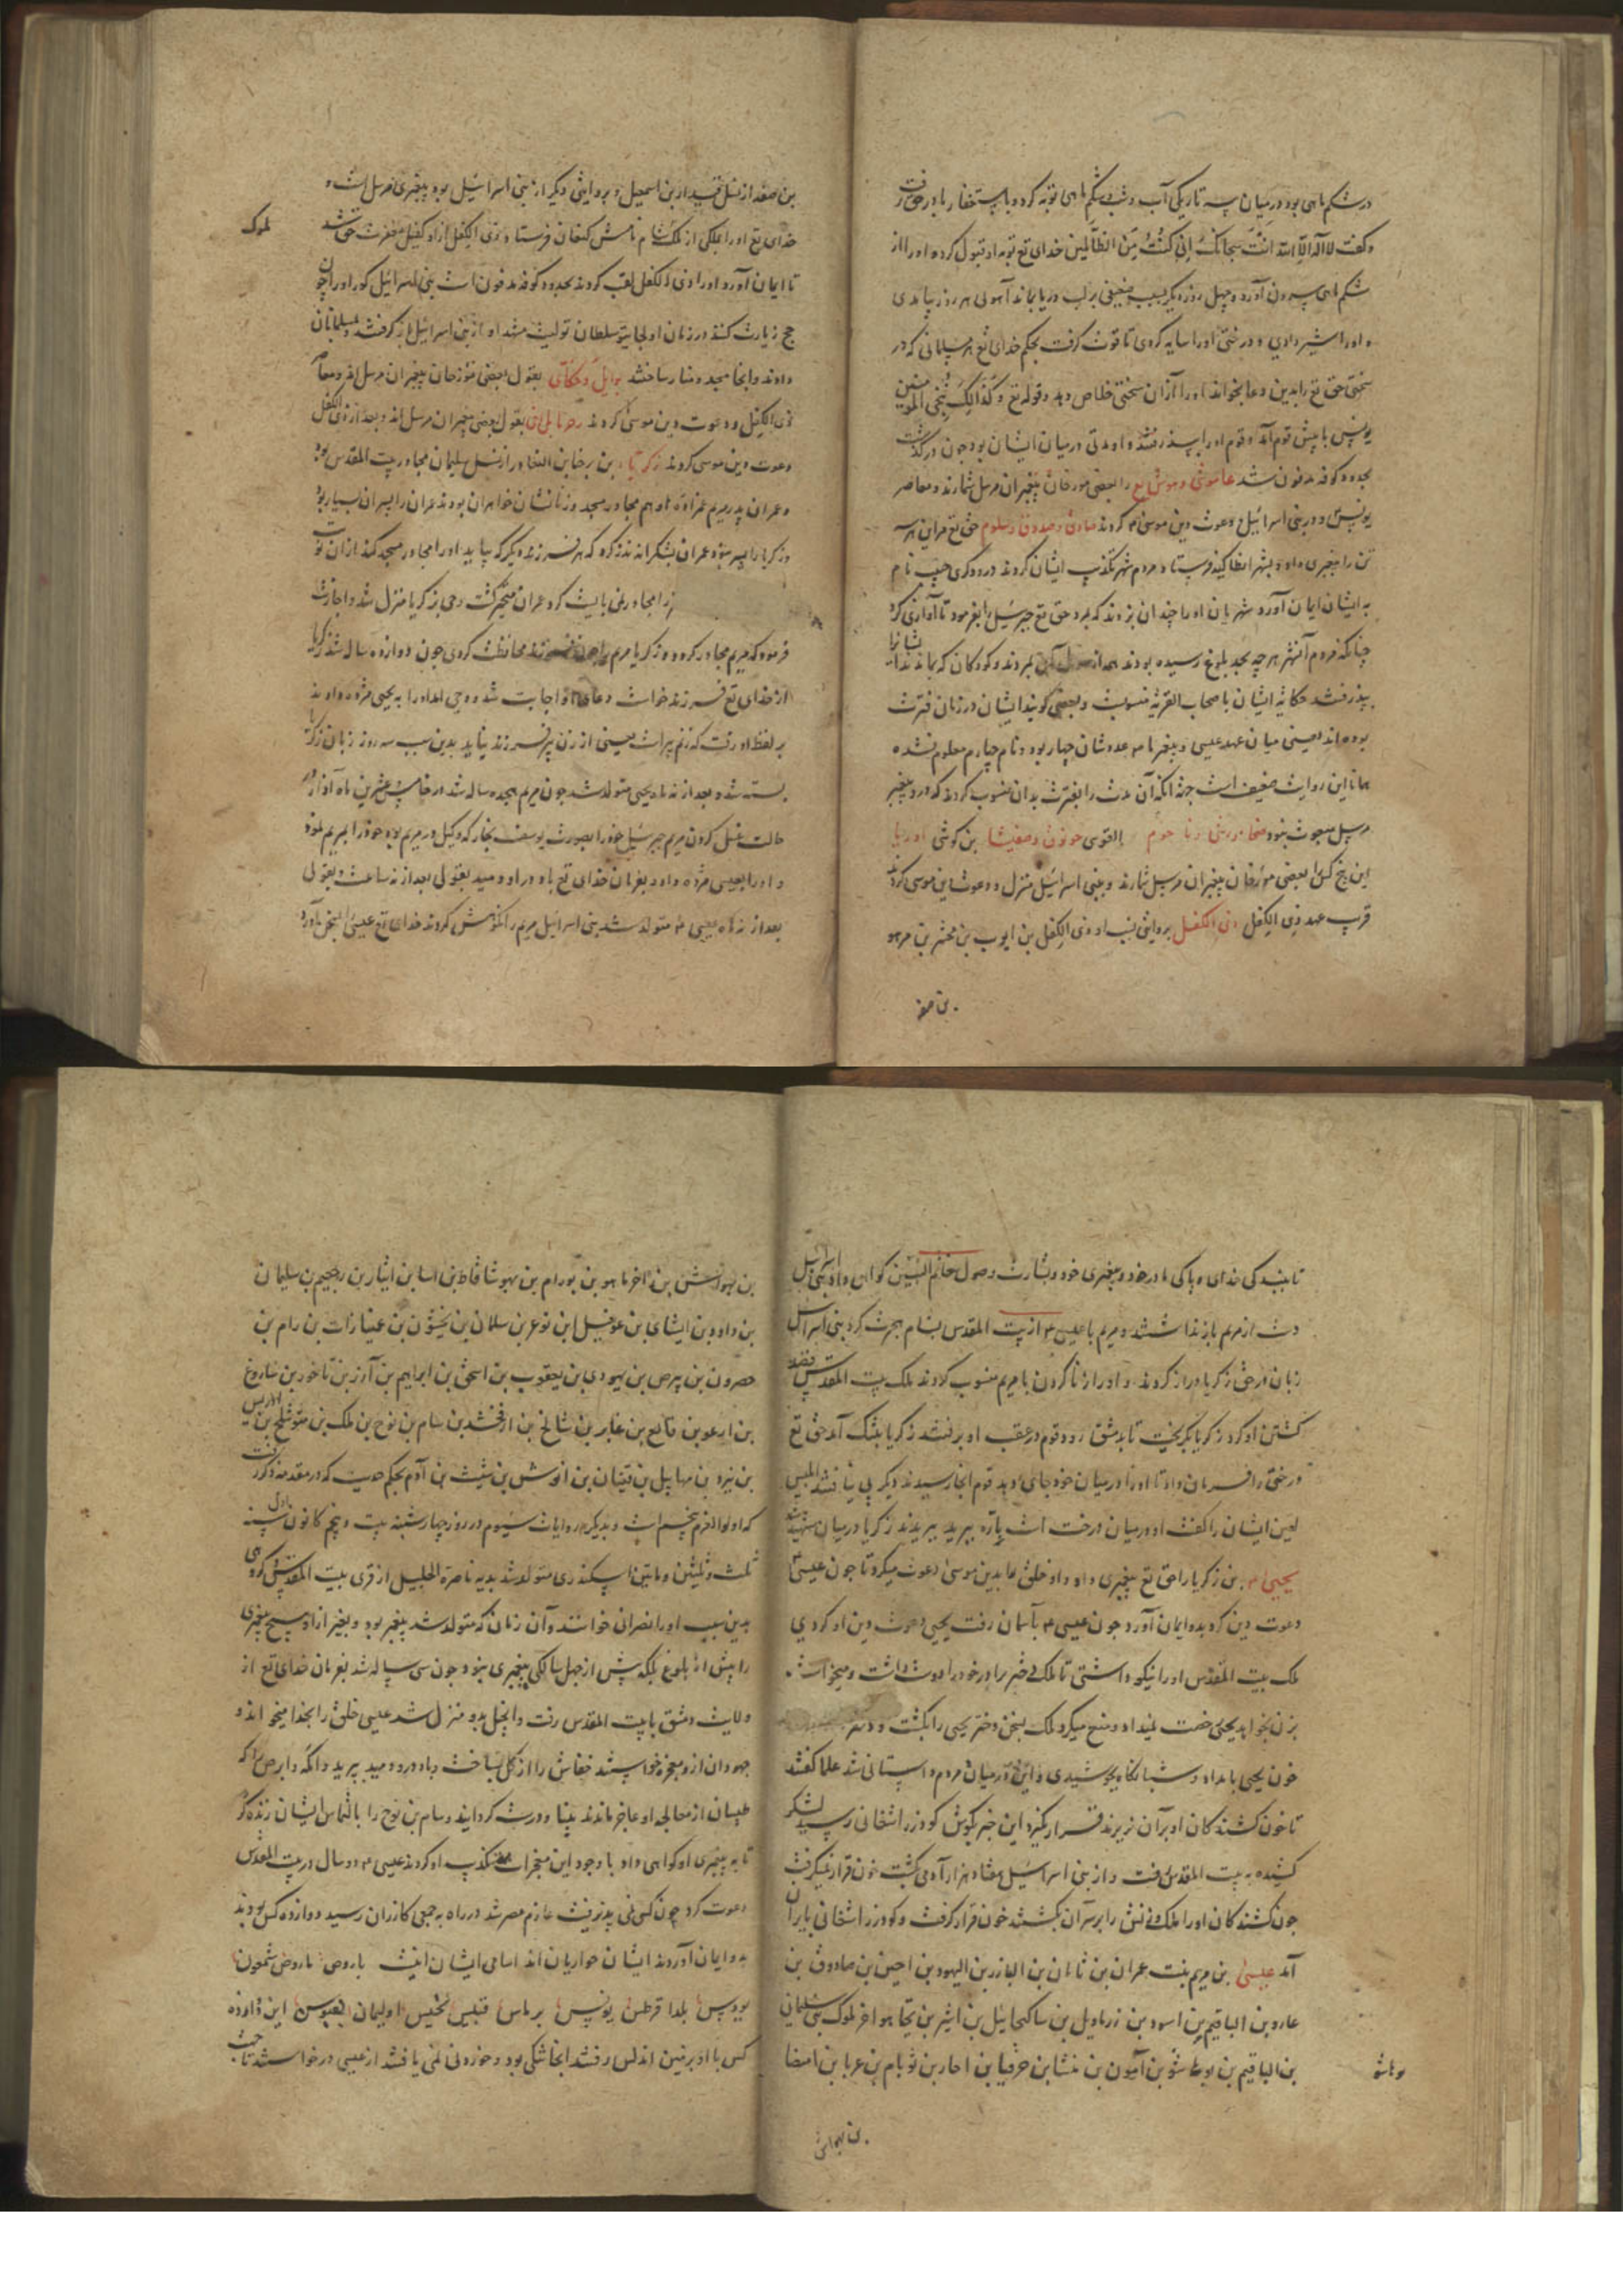 در شکم ماهی بود در میان سه تاریکی آب و شب و شکم ماهی توبه کرد و با استغفار با در حق رفت
و گفت لا اله الا انت سبحانک انی کنت من الظالمین خدای تع توبه او قبول کرد و او را از
شکم ماهی بیرون آورد و چهل روز دیگر بسبب ضعیفی بر لب دریا بماند آهوئی هر روز بیامدی
و او را شیر دادی و درختی او را سایه کردی تا قوت گرفت بحکم خدای تع هر مسلمانی که در
سختی حق تع را بدین دعا بخواند او را از آن سختی خلاص دهد و قوله تع و کذالک ننجی المومنین
یونس با پیش قوم آمد و قوم او را پذیرفتند و او مدتی در میان ایشان بود چون درگذشت
بحدود کوفه مدفون شد عاموشی و موشع را بعضی مورخان پیغمبران مرسل شمارند و معاصر
یونس و در بنی اسرائیل دعوت دین موسی ع کردند صادق و صدوق و سلوم حق تع مر این سه
تن را پیغمبری داد و بشهر انطاکیه فرستاد مردم شهر تکذیب ایشان کردند درودگری حبیب نام
به ایشان ایمان آورد شهریان او را چندان بزدند که بمرد حق تع جبرئیل را بفرمود تا آوازی کرد
چنانکه مردم آنشهر هر چه بحد بلوغ رسیده بودند همه از هول آن بمردند و کودکان که بماندند ایشانرا
بپذیرفتند حکایة ایشان باصحاب القریه منسوبست و بعضی گویند ایشان در زمان فترت
بوده اند یعنی میان عهد عیسی و پیغمبر ما ص و عددشان چهار بود و نام چهارم معلوم نشده
همانا این روایت ضعیف است جهة آنکه آن مدت را بفترت بدان منسوب کردند که درو پیغمبر
مرسل مبعوث نبود حوقوق و صفیشا بن کوشی اوریا
این پنج کس را بعضی مورخان پیغمبران مرسل شمارند و ببنی اسرائیل منزل و دعوت دین موسی کردند
قرب عهد ذی الکفل ذی الکفل بروایتی نسب او ذی الکفل بن ایوب بن
بن صفد
بن صفد از نسل قیدار بن اسمعیل و بروایتی دیگر از بنی اسرائیل بود پیغمبری مرسل است و
خدای تع او را بملکی از ملک شام نامش کنعان فرستاد و ذی الکفل او را کفیل مغفرت حق شد
ملوک
تا ایمان آورد او را ذی الکفل لقب کردند بحدود کوفه مدفون است بنی اسرائیل گور او را چون
حج زیارت کنند در زمان اولجایتو سلطان تولیت مشهد او از بنی اسرائیل باز گرفتند و بمسلمانان
دادند و آنجا مسجد و منار ساختند بقول بعضی مورخان پیغمبران مرسل اند و معاصر
ذی الکفل و دعوت دین موسی کردند بقول بعضی پیغمبران مرسل اند و بعد از ذی الکفل
دعوت دین موسی کردند زکریا بن برخیا از نسل سلیمان مجاور بیت المقدس بود
و عمران پدر مریم عمزاده او هم مجاور مسجد و زنانشان خواهران بودند عمران را پسران بسیار بود
و زکریا را پسر نبود عمران بشکرانه نذر کرد که هر فرزند دیگر که بیاید او را مجاور مسجد کند
را مجاور نمی بایست کرد عمران متحیر گشت وحی بزکریا منزل شد و اجازت
فرمود که مریم مجاور کردد و زکریا مریم را چون فرزند محافظت کردی چون دوازده ساله شد زکریا
از خدای تع فرزند خواست دعاء او اجابت شد و وحی آمد او را به یحیی مژده دادند
بر لفظ او رفت که زنم پیر است یعنی از زن پیر فرزند نیاید بدین سبب سه روز زبان زکریا
بسته شد و بعد از نه ماه یحیی متولد شد چون مریم هجده ساله شد در خامس عشرین ماه آذار در
حالت غسل کردن مریم جبرئیل خود را بصورت یوسف نجار که وکیل در مریم بود خود را بمریم نمود
و او را بعیسی مژده داد و بفرمان خدای تع باد در او دمید بقولی بعد از نه ساعت و بقولی
بعد از نه ماه عیسی ع متولد شد بنی اسرائیل مریم را نکوهش کردند خدای تع عیسی را بسخن آورد
تا ببندکی خدای و پاکی مادر خود و پیغمبری خود و بشارت وصول خاتم النبیین گواهی داد بنی اسرائیل
دست از مریم باز نداشتند و مریم با عیسی ع از بیت المقدس بشام هجرت کرد بنی اسرائیل
زبان در حق زکریا دراز کردند و او را زنا کردن با مریم منسوب کردند ملک بیت المقدس قصد
کشتن او کرد زکریا بگریخت تا بدمشق رود قوم در عقب او برفتند زکریا بتنک آمد حق تع
درختی را فرمان داد تا او را در میان خود جای دهد قوم آنجا رسیدند دیگر پی نیافتند ابلیس
لعین ایشان را گفت او در میان درخت است باره ببرید ببریدند زکریا در میان شهید شد
یحیی ع بن زکریا را حق تع پیغمبری داد و او خلق را بدین موسی دعوت میکرد تا چون عیسی ع
دعوت دین کرد بدو ایمان آورد چون عیسی ع بآسمان رفت یحیی دعوت دین او کردی
ملک بیت المقدس او را نیکو داشتی تا ملک دختر برادر خود را دوست داشت و میخواست
بزن بخواهد یحیی رخصت نمیداد و منع میکرد ملک بسخن دختر یحیی را بکشت و دو سر
خون یحیی بامداد و شبانگاه بجوشیدی و این در میان مردم داستانی شد علما گفتند
تا خون کشندگان او بر آن نریزند قرار نگیرد این خبر بگوش گودرز اشغانی رسید لشکر
کشیده به بیت المقدس رفت و از بنی اسرائیل هفتاد هزار آدمی بکشت خون قرار نمیگرفت
چون کشندگان او را و ملک و زنش را بر سر آن بکشتند خون قرار گرفت و گودرز اشغانی با ایران
آمد عیسی بن مریم بنت عمران بن ماثان بن الیازر بن الیهود بن اخین بن صادوق بن
عازور بن الیاقیم بن اسود بن زربابیل بن سالتحیایل بن انیر بن یحیاهو اخر ملوک بنی سلیمان
بن الیاقیم بن یوشا بن آمون بن منشا بن حزقیا بن احاز بن یوثام بن عزریا بن امصیا
یوشا
بن یهواش
بن یهواش بن اخزیاهو بن یورام بن یهوشافاط بن اسا بن ابیا بن رجیعم بن سلیمان
بن داود بن ایشای بن عوفیل ابن بوعز بن سلمان بن نخشون بن عمیناداب بن رام بن
حصرون بن پرص بن یهودی بن یعقوب بن اسحق بن ابراهیم بن آزر بن ناخور بن شاروغ
بن ارغو بن فالع بن عابر بن شالخ بن ارفخشد بن سام بن نوح بن ملک بن متوشلخ بن ادریس
بن یزد بن مهلاییل بن قینان بن انوش بن شیث بن آدم بحکم حدیث که در مقدمه ذکر رفت
که اولوالعزم پنجم است و بدیگر روایات سیوم در روز چهارشنبه بیست و پنجم کانون اول سنه
ثلث و ثلثین و مایتین اسکندری متولد شد بدیه ناصرة الجلیل از قری بیت المقدس گویی
بدین سبب او را نصرانی خوانند و آن زمان که متولد شد پیغمبر بود و بغیر از او هیچ پیغمبری
را پیش از بلوغ بلکه پیش از چهل سالگی پیغمبری نبود چون سی ساله شد بفرمان خدای تع از
ولایت دمشق با بیت المقدس رفت و انجیل بدو منزل شد عیسی خلق را بخدا میخواند و
جهودان ازو معجزه خواستند خفاش را از گل بساخت و باد درو دمید بپرید و اکمه و ابرص را که
طبیبان از معالجه او عاجز ماندند بینا و درست گردانید و سام بن نوح را بالتماس ایشان زنده کرد
تا به پیغمبری او گواهی داد با وجود این معجزات تکذیب او کردند عیسی ع دو سال در بیت المقدس
دعوت کرد چون کس نمی پذیرفت عازم مصر شد در راه به جمعی کازران رسید دوازده کس بودند
بدو ایمان آوردند ایشان حواریان اند اسامی ایشان اینست شمعون
یونس این دوازده
کس با او بزمین اندلس رفتند آنجا خشکی بود و خوردنی نمی یافتند از عیسی درخواستند تا